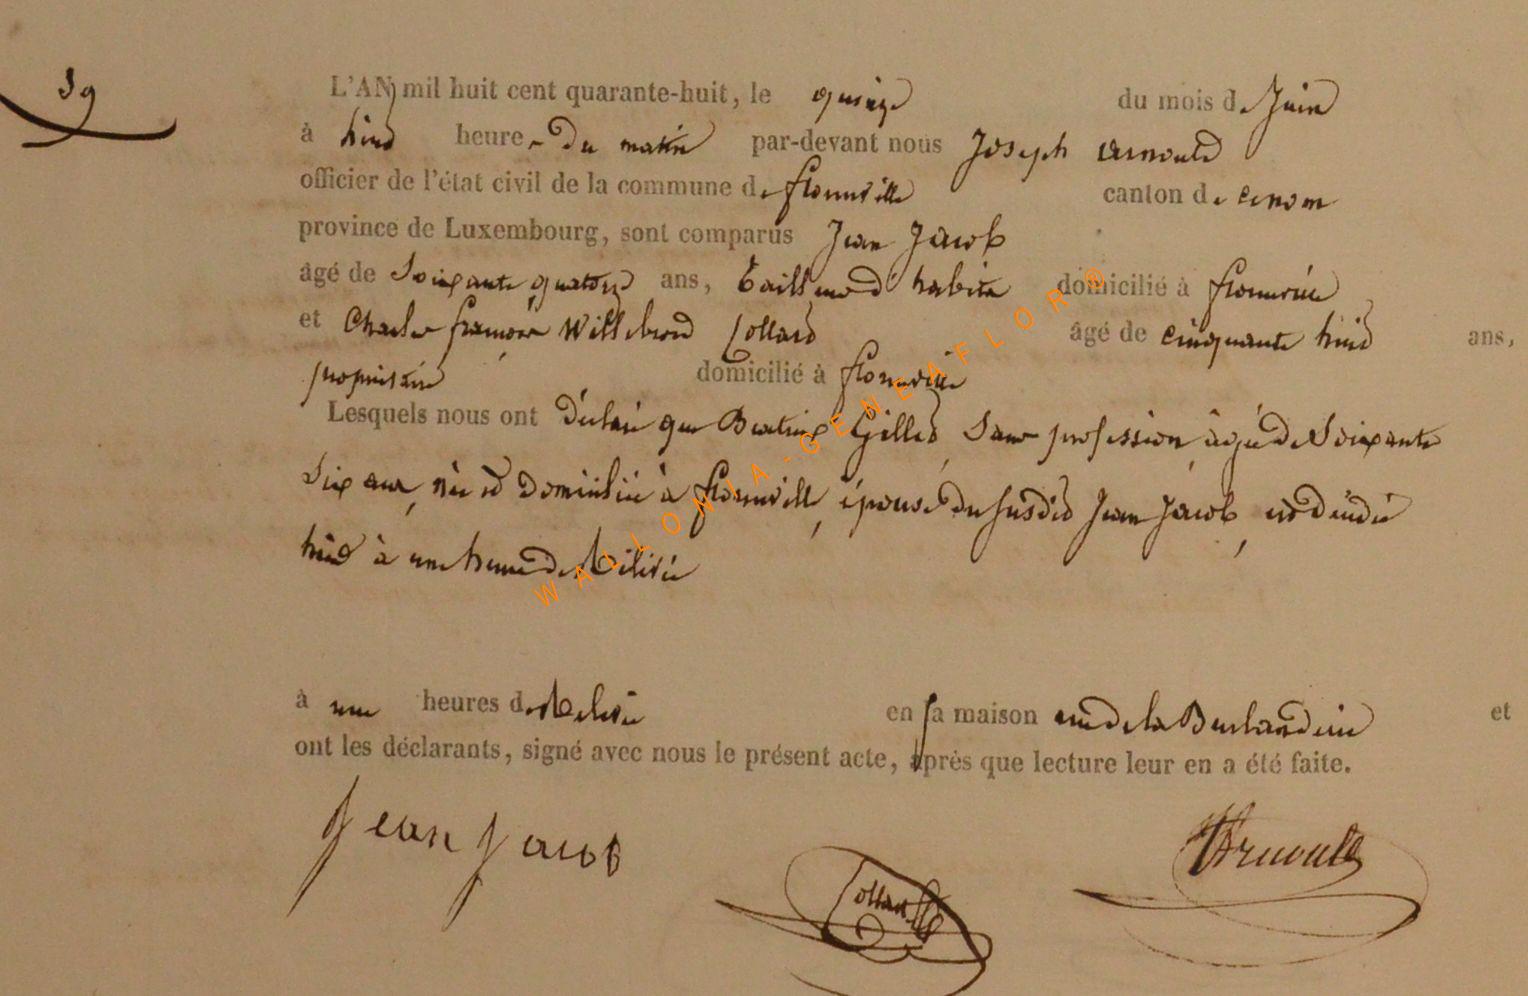 39
L'AN mil huit cent quarante-huit, le quinze du mois de Juin
à huit heures du matin par-devant nous Joseph Arnould
officier de l'état civil de la commune de florenville canton de idem
province de Luxembourg, sont comparus Jean Jacob
âgé de Soixante quatorze ans, tailleur d'habits domicilié à florenville
et Charles françois Willebrord Collard âgé de cinquante huit ans,
propriétaire domicilié à florenville
Lesquels nous ont déclaré que Beatrix Gilles, Sans profession, âgée de Soixante
Six ans, née et domiciliée à florenville, épouse du susdit Jean Jacob, est décédée
hier à une heure de relevée
à une heures de relevée en sa maison rue de la et
ont les déclarants, signé avec nous le présent acte, après que lecture leur en a été faite.
Jean Jacob
Collard
Arnould
WALLONIA-GENEAFLOR®